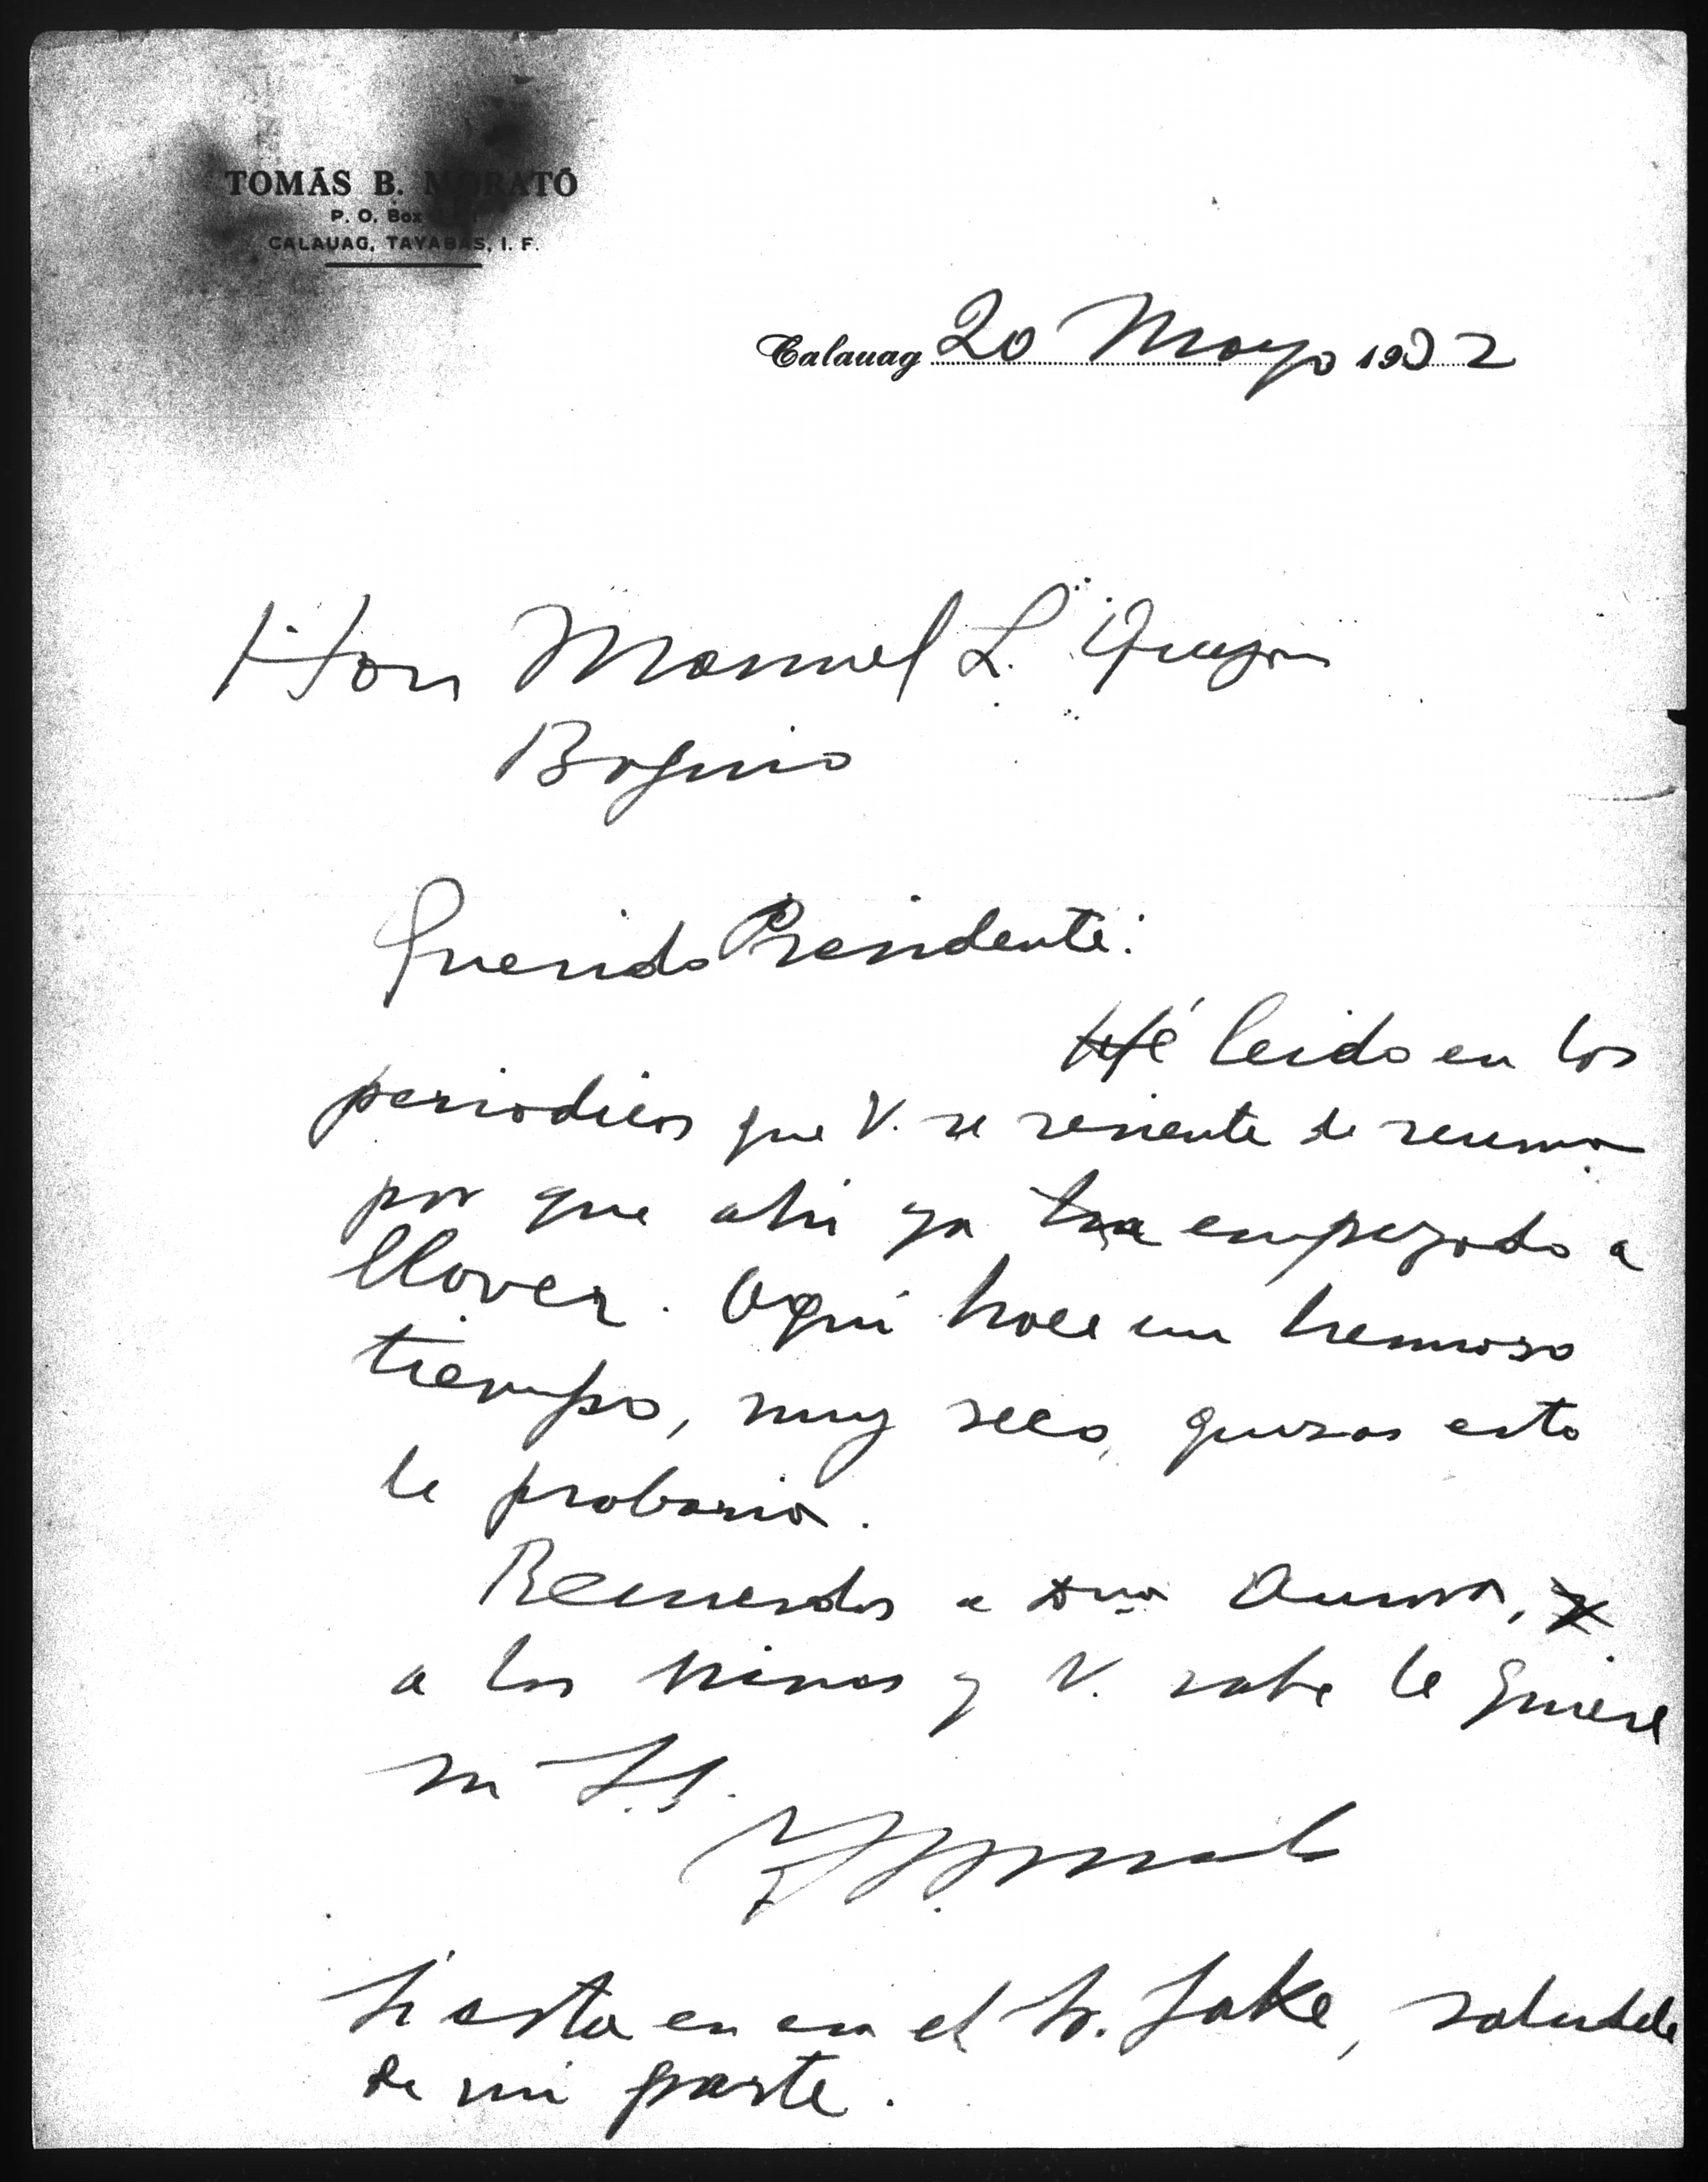 TOMÁS B. MORATÓ
P. O. Box
CALAUAG, TAYABAS, I. F.
Calauag 20 Mayo 1932
Hon Manuel L. Quezon
Baguio
Querido Presidente:
Hé leido en los
periodicos que V. se resiente de reuma
por que ahi ya ha empezado a
llover. Aqui hace un hermoso
tiempo, muy seco, quizas esto
le probaria.
Recuerdos a Dña Aurora, y
a los ninos y V. sabe le quiere
su S.S.
Si esta en el Sr. Jake, saludele
de mi parte.